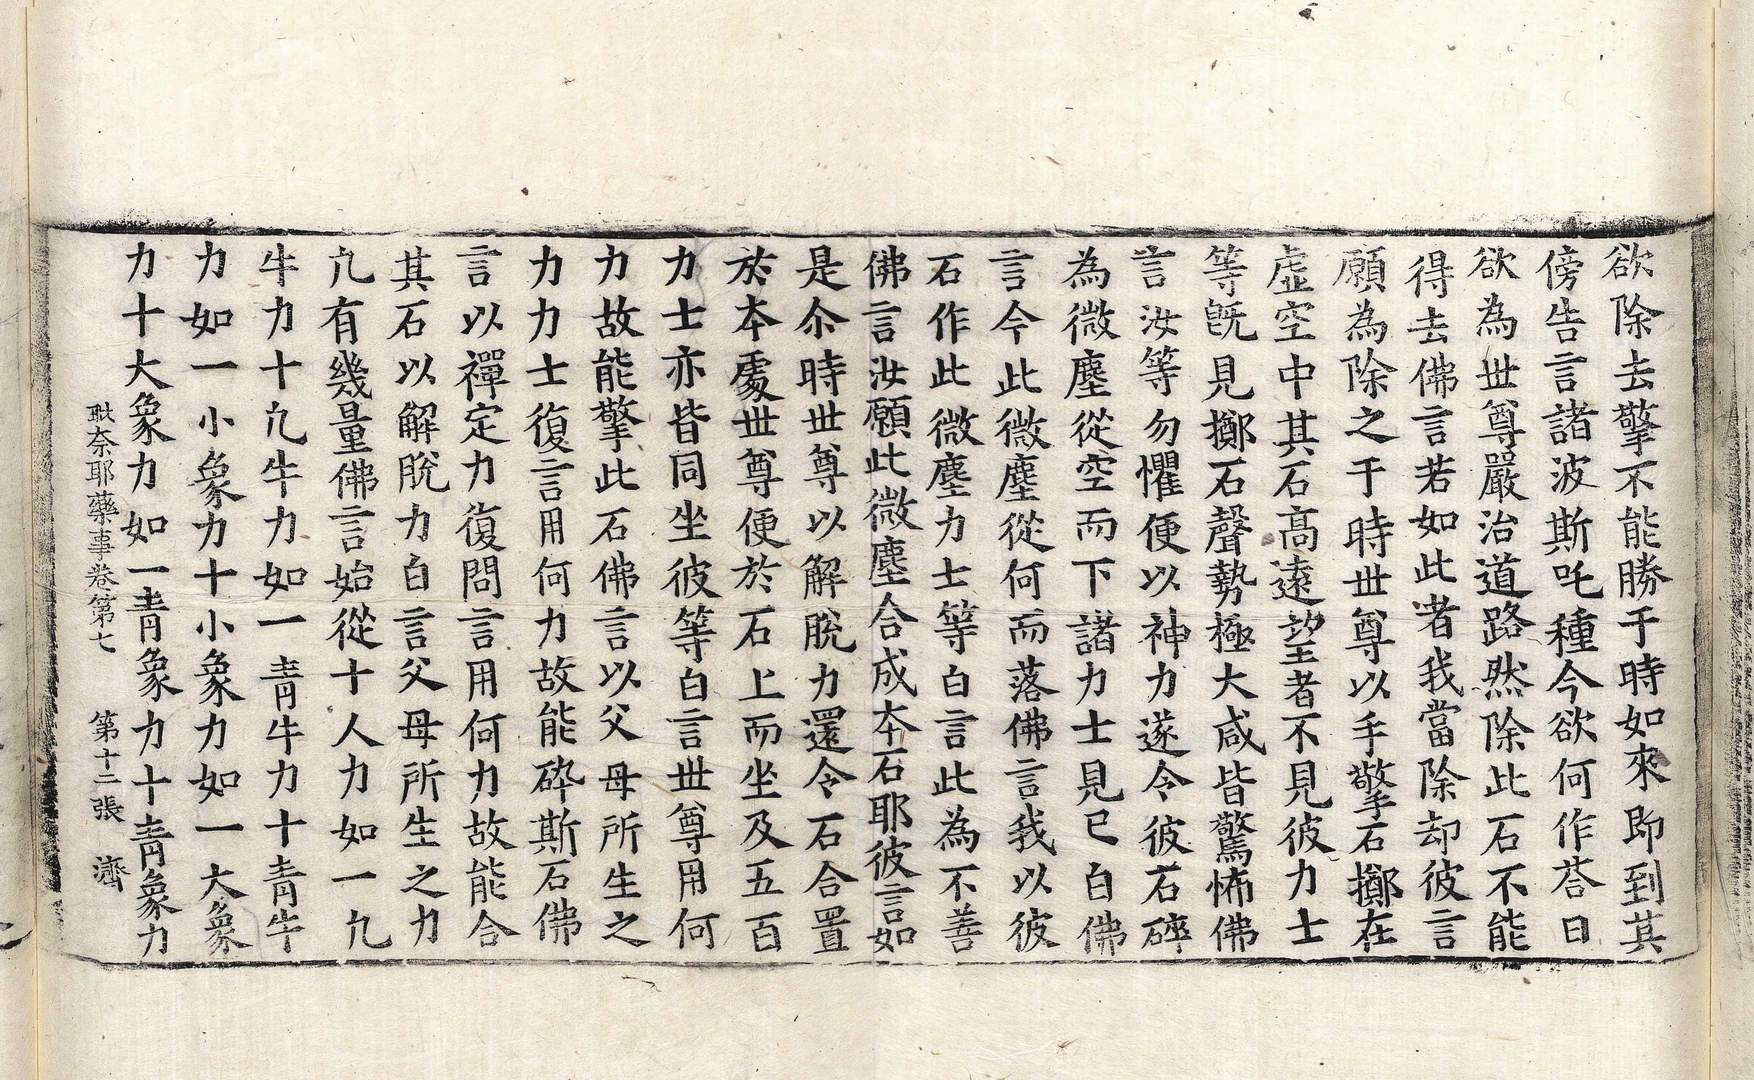 欲除去擎不能勝于時如來即到其
傍告言諸波斯吒種今欲何作荅曰
欲為世尊嚴治道路然除此石不能
得去佛言若如此者我當除却彼言
願為除之于時世尊以手擎石擲在
虛空中其石高遠望者不見彼力士
等旣見擲石聲勢極大咸皆驚怖佛
言汝等勿懼便以神力遂令彼石碎
為微塵從空而下諸力士見已白佛
言今此微塵從何而落佛言我以彼
石作此微塵力士等白言此為不善
佛言汝願此微塵合成本石耶彼言如
是尒時世尊以解脫力還令石合置
於本處世尊便於石上而坐及五百
力士亦皆同坐彼等白言世尊用何
力故能擎此石佛言以父母所生之
力力士復言用何力故能碎斯石佛
言以禪定力復問言用何力故能合
其石以解脫力白言父母所生之力
凢有幾量佛言始從十人力如一凢
牛力十凢牛力如一青牛力十青牛
力如一小象力十小象力如一大象
力十大象力如一青象力十青象力
毗奈耶藥事卷第七　第十二張　濟